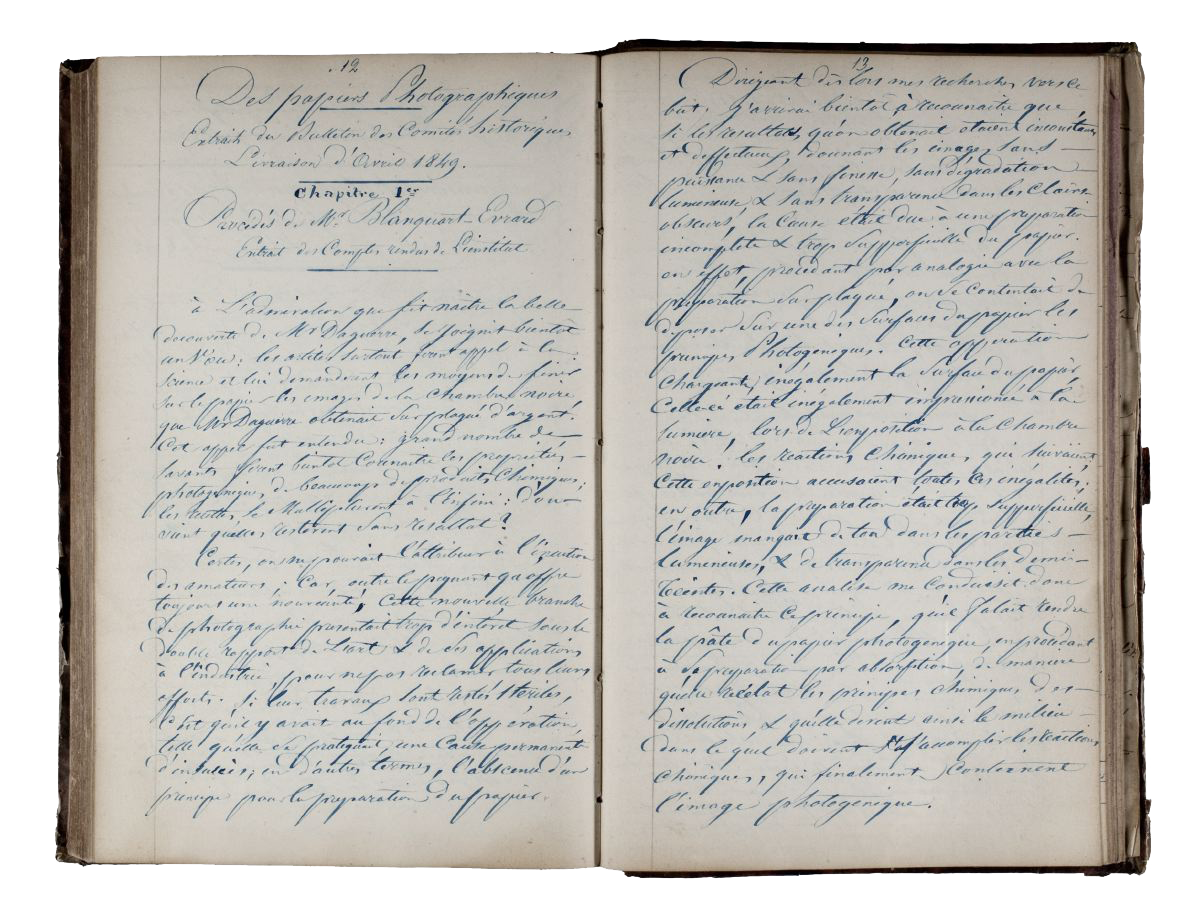 12
Des papiers Photographiques
Extrait du Bulletin des Comités historiques
Livraison d'Avril 1849.
Chapitre 1er
Procédés de Mr Blanquart-Evrard
Extrait des Comptes rendus de L'institut
à L'admiration que fit naître la belle
decouverte de Mr Daguerre, se joignit bientôt
un Vœu: les artistes surtout firent appel à la
Science et lui demanderent les moyens de fixer
sur le papier les images de la Chambre noire,
que Mr Daguerre obtenait sur plaqué d'argent.
Cet appel fut entendu: grand nombre de
Savants firent bientot Connaitre les propriétés
photogéniques de beaucoup de produits Chimiques;
les recettes se Multiplièrent à l'infini: d'ou
vient quelles restèrent Sans resultat?
Certes, on ne pourait l'attribuer à l'
des amateurs; Car, outre le piquant qu'offre
toujours une nouveauté, Cette nouvelle branche
de photographie presentait trop d'interet sous le
Double rapport de L'art & de ses applications
à l'industrie, pour ne pas reclamer tous leurs
efforts. Si leur travaux sont restés steriles,
c'est qu'il y avait au fond de l'opération,
telle qu'elle se pratiquait, une Cause permanente
d'insuccès; en d'autres termes, l'abscence d'un
principe pour la preparation du papier.
13
Dirigeant dès lors mes recherches vers ce
but, j'arrivai bientôt à reconnaitre que
si les resultats qu'on obtenait etaient inconstans
et deffectueux, donnant les images sans
puissance & sans finesse, sans dégradation
lumineuse & sans transparence dans les Clairs
obscurs, la Cause était due à une preparation
incomplete & trop Supperficielle du papier.
en effet, procédant par analogie avec la
preparation sur plaqué, on se contentait de
déposer sur une des Surfaces du papier les
principes Photogéniques. Cette opperation
Chargeant, inégalement la Surface du papier,
Celle-ci était inégalement impressionée à la
lumière, lors de L'exposition à la Chambre
noire: les reactions Chimiques, qui suivaient
Cette exposition accusaient toutes ces inégalités;
en outre, la preparation était trop Supperficielle,
l'image manquait de ton dans les parties
lumineuses, & de transparence dans les demi-
teintes. Cette analise me Conduisit donc
à reconnaitre ce principe, qu'il falait rendre
la pâte du papier photogénique, en procédant
à sa preparation par absorption, de manière
qu'elle recélat les principes chimiques des
dissolutions & qu'elle devint ainsi le milieu
dans le quel doivent s'accomplir les réactions
chimiques, qui finalement
l'image photogenique.